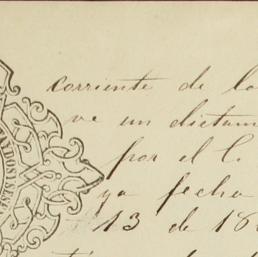 corriente de la
ve un dictam
por el C.
ya fecha
13 de 18